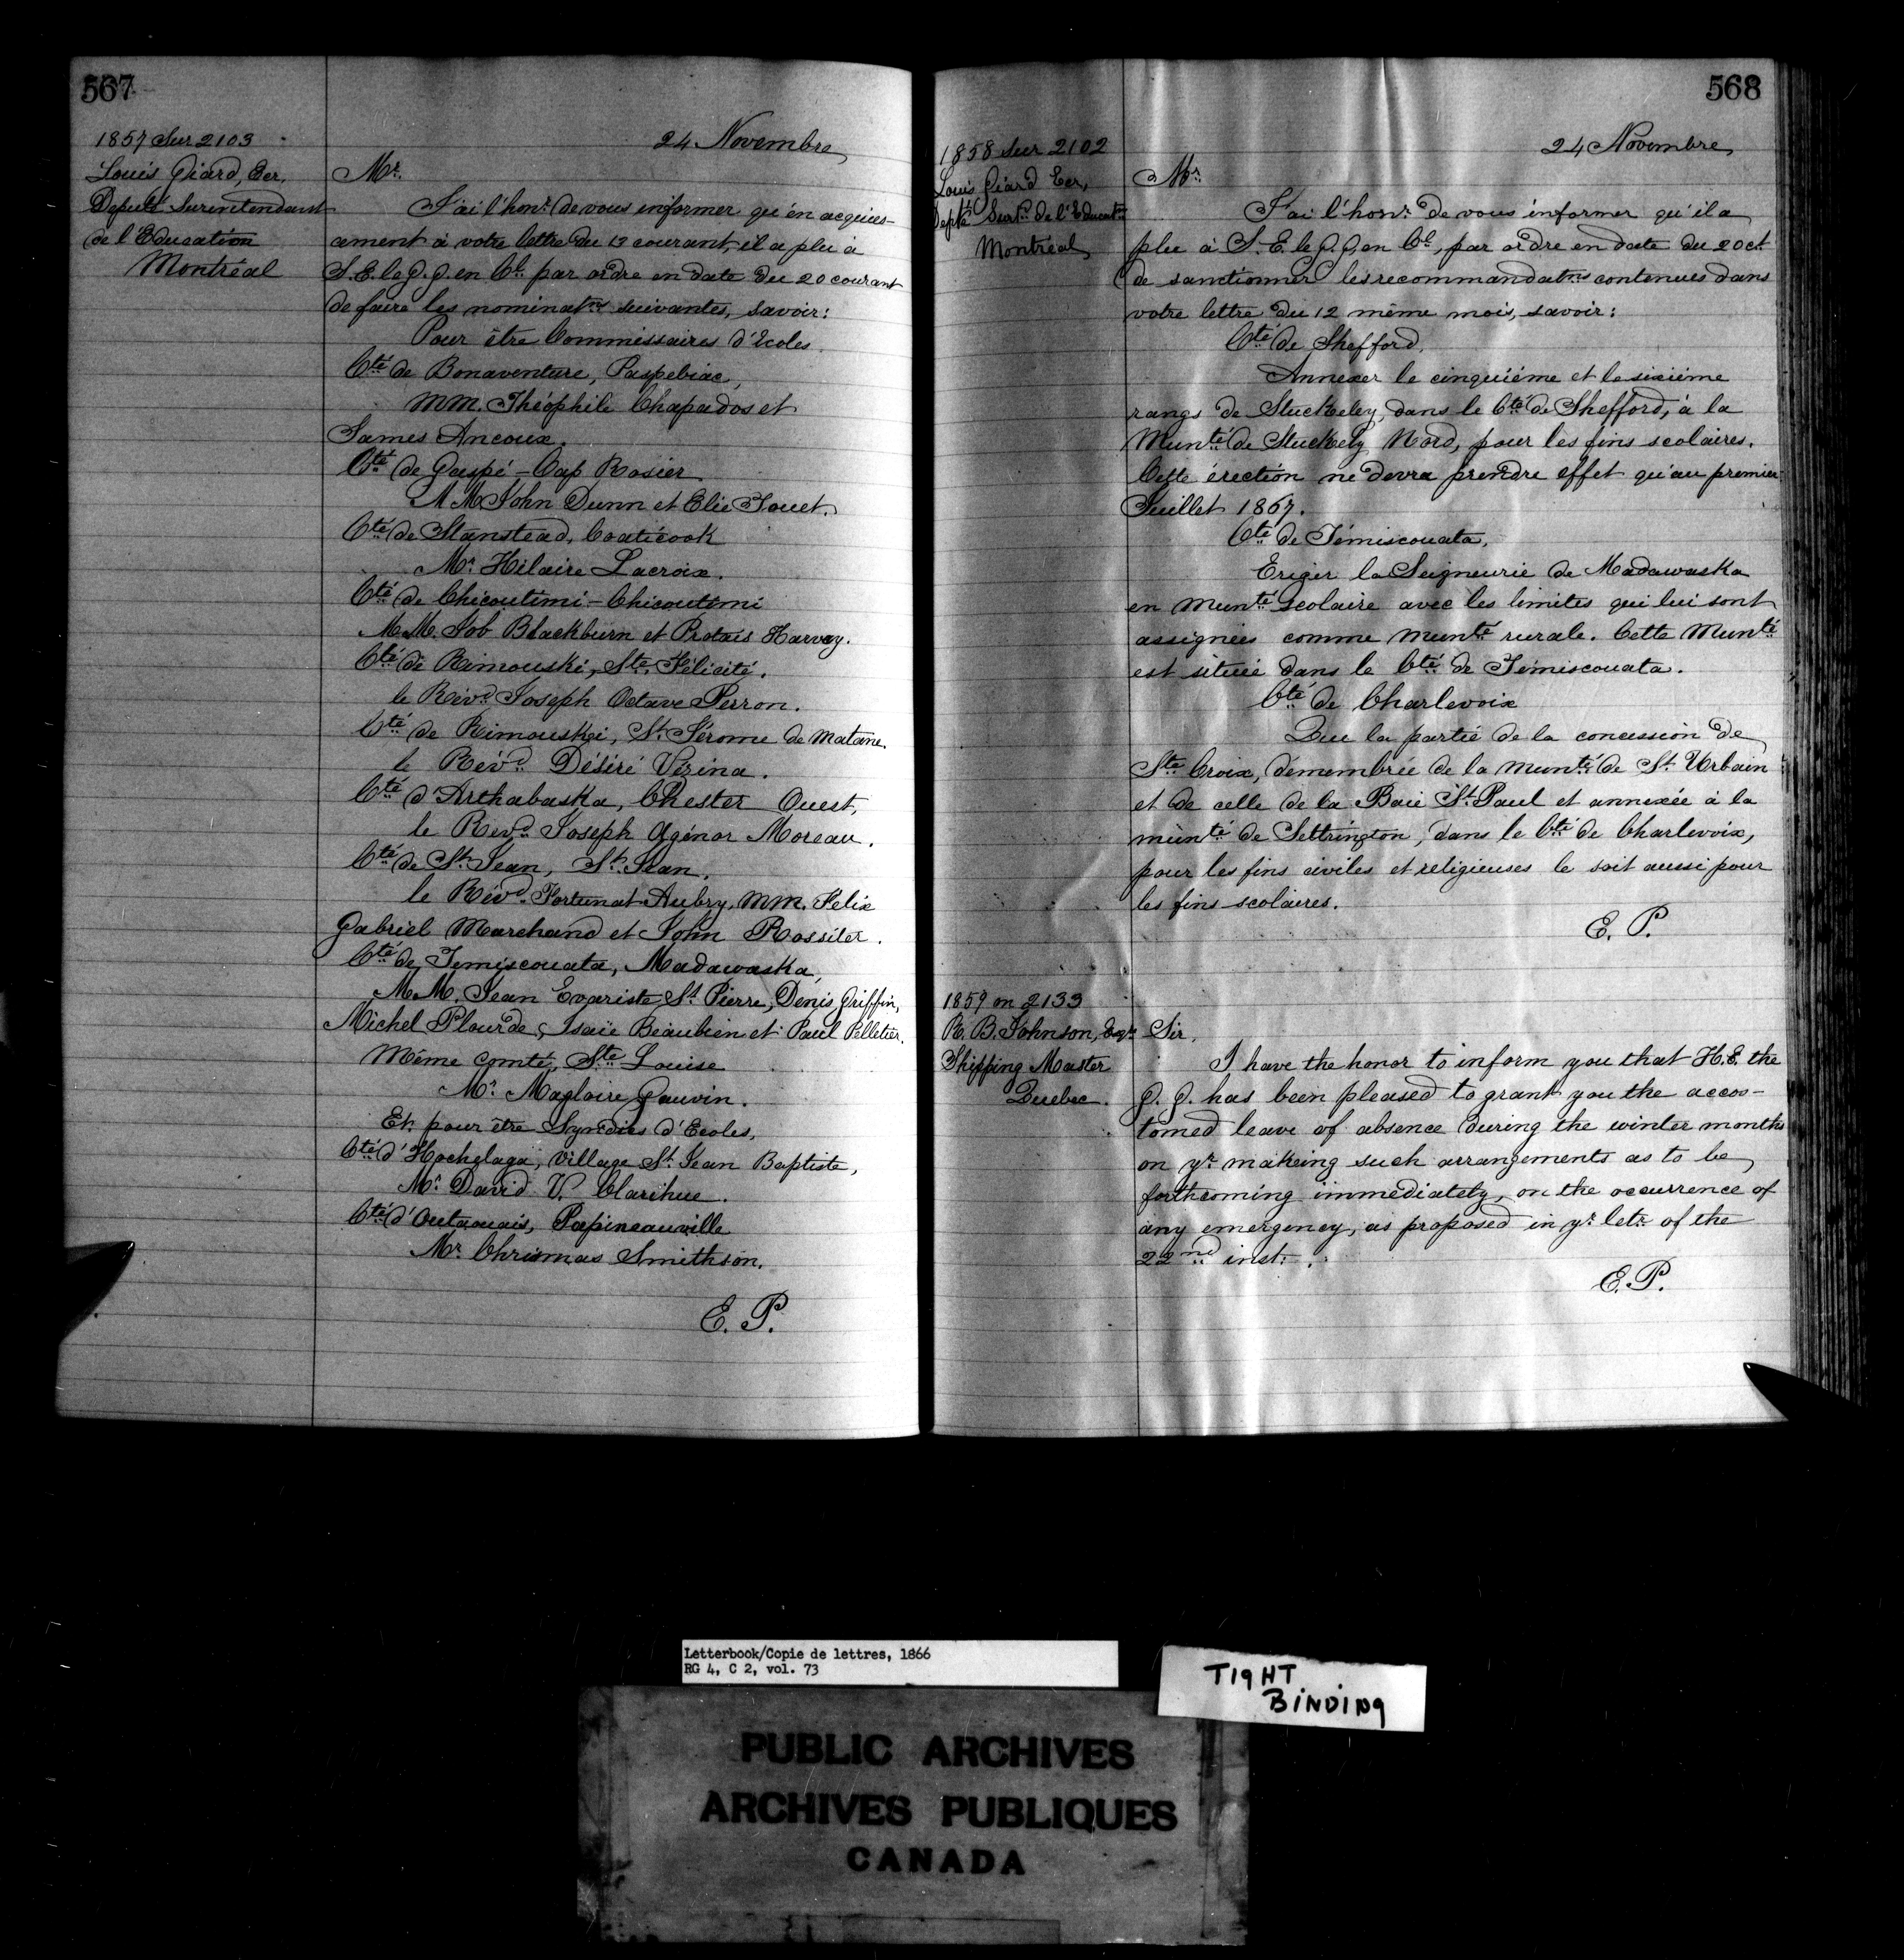 567
1857 Sur 2103
Louis Giard, Ecr.
Deputé Surintendant
de l'Education
Montréal
24 Novembre
Mr.
J'ai l'honr. de vous informer qu'en acquies-
cement à votre lettre du 12 courant, il a plu à
S. E. le G. G. en Cl. par ordre en date du 20 courant
de faire les nominatns suivantes, savoir:
Pour être Commissaires d'Ecoles.
Cté de Bonaventure, Paspebiac,
MM. Théophile Chapados et
James Ancoux.
Cté de Gaspé - Cap Rosier
MM. John Dunn et Elie Jouet.
Cté de Stanstead, Coaticook
Mr. Hilaire Lacroix.
Cté de Chicoutimi - Chicoutimi
M.M. Job Blackburn et Protais Harvay.
Cté de Rimouski, Ste. Félicité.
le Révd. Joseph Octave Perron.
Cté de Rimouski, St. Jérome de Matane.
le Révd. Désiré Vézina.
Cté d'Arthabaska, Chester Ouest,
le Revd. Joseph Agénor Moreau.
Cté de St. Jean, St. Jean.
le Révd. Fortunat Aubry, MM. Felix
Gabriel Marchand et John Rossiter.
Cté de Temiscouata, Madawaska,
M.M. Jean Evariste St. Pierre, Denis Griffin,
Michel Plourde, Isaïe Beaubien et Paul Pelletier.
Même comté, Ste. Louise
Mr. Magloire Gauvin.
Et pour être Syndics d'Ecoles,
Cté d'Hochelaga, Village St. Jean Baptiste,
Mr. David V. Clarihue.
Cté d'Outaouais, Papineauville
Mr. Chrismas Smithson.
E. P.
568
1858 sur 2102
Louis Giard Ecr,
Depté Surt. de l'Educatn
Montréal
24 Novembre
Mr.
J'ai l'honr. de vous informer qu'il a
plu à S. E. le G. G. en Cl., par ordre en date du 20 ct
de sanctionner les recommandatns contenues dans
votre lettre du 12 même mois, savoir:
Cté de Shefford.
Annexer le cinquième et le sixième
rangs de Stuckeley, dans le Cté de Shefford, à la
Munté de Stuckely Nord, pour les fins scolaires.
Cette érection ne devra prendre effet qu'au premier
Juillet 1867.
Cté de Témiscouata.
Eriger la Seigneurie de Madawaska
en munté scolaire avec les limites qui lui sont
assignées comme munté rurale. Cette Munté
est située dans le Cté de Témiscouata.
Cté de Charlevoix
Que la partie de la concession de
Ste Croix, démembrée de la munté de St. Urbain
et de celle de la Baie St. Paul et annexée à la
munté de Settrington, dans le Cté de Charlevoix,
pour les fins civiles et religieuses le soit aussi pour
les fins scolaires.
E. P.
1859 on 2133
R. B. Johnson, Esqr.
Shipping Master
Quebec.
Sir,
I have the honor to inform you that H. E. the
G. G. has been pleased to grant you the accos-
tomed leave of absence during the winter months
on yr. makeing such arrangements as to be
forthcoming immediately, on the occurrence of
any emergency, as proposed in yr. letr. of the
22nd inst.
E. P.
Letterbook/Copie de lettres, 1866
RG 4, C 2, vol. 73
TIGHT
BINDING
PUBLIC ARCHIVES
ARCHIVES PUBLIQUES
CANADA